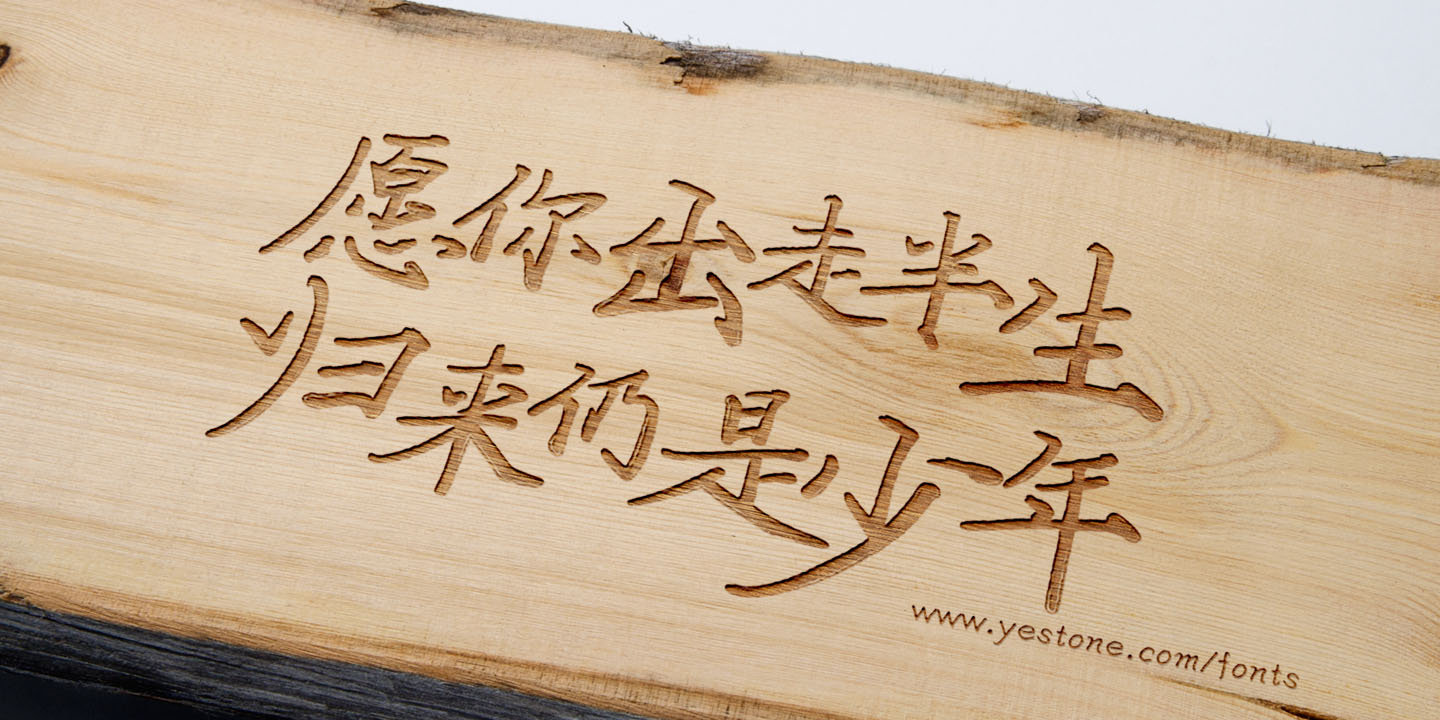 愿你出走半生
归来仍是少年
www.yestone.com/fonts